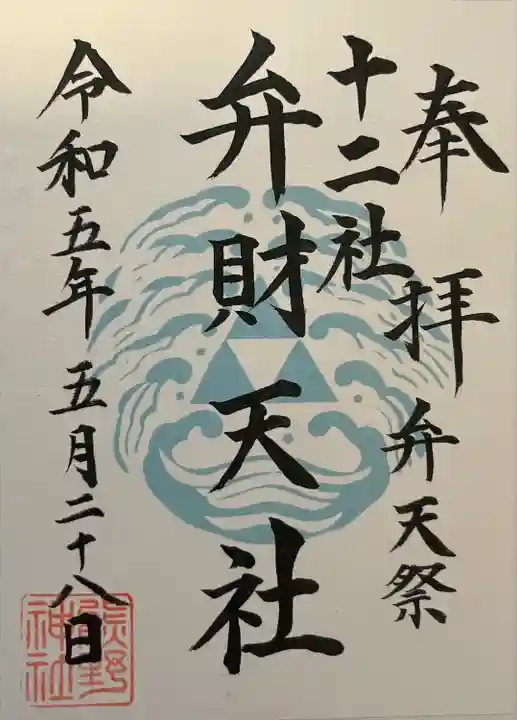 奉拝 弁天祭
十二社
弁財天社
令和五年 五月二十八日
熊野神社